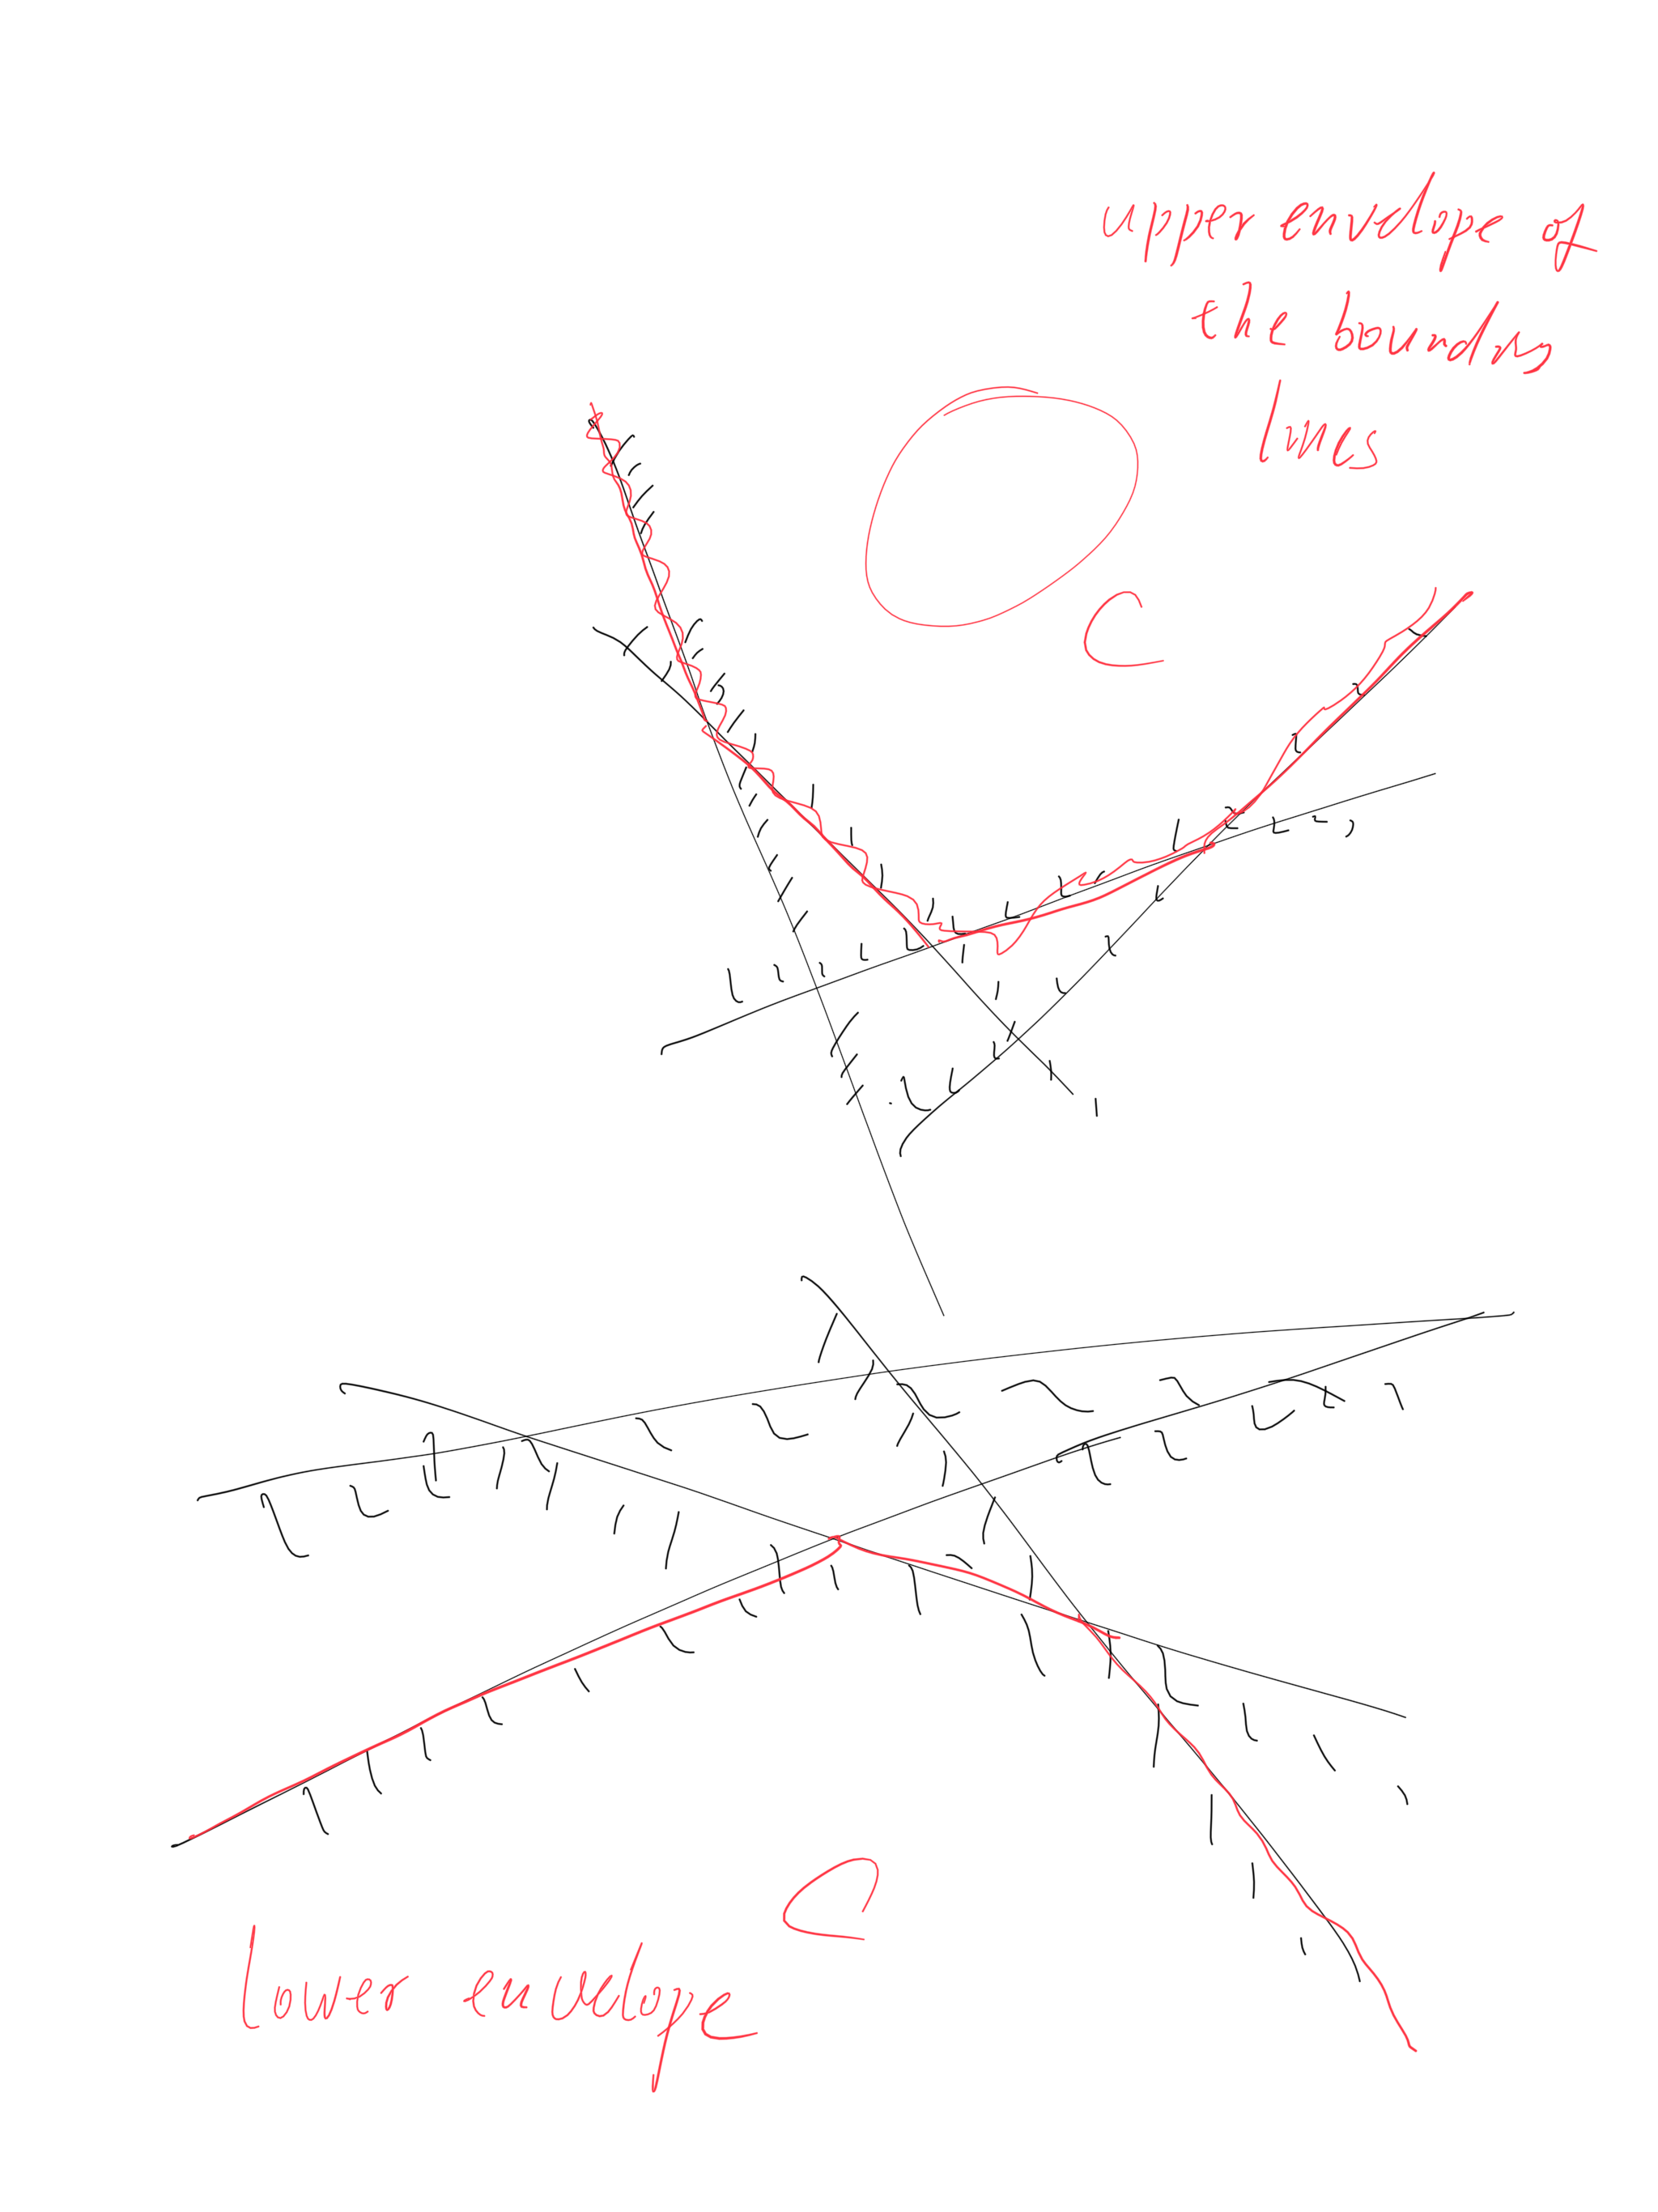 upper envelope of
the boundary
lines
C
C
lower envelope